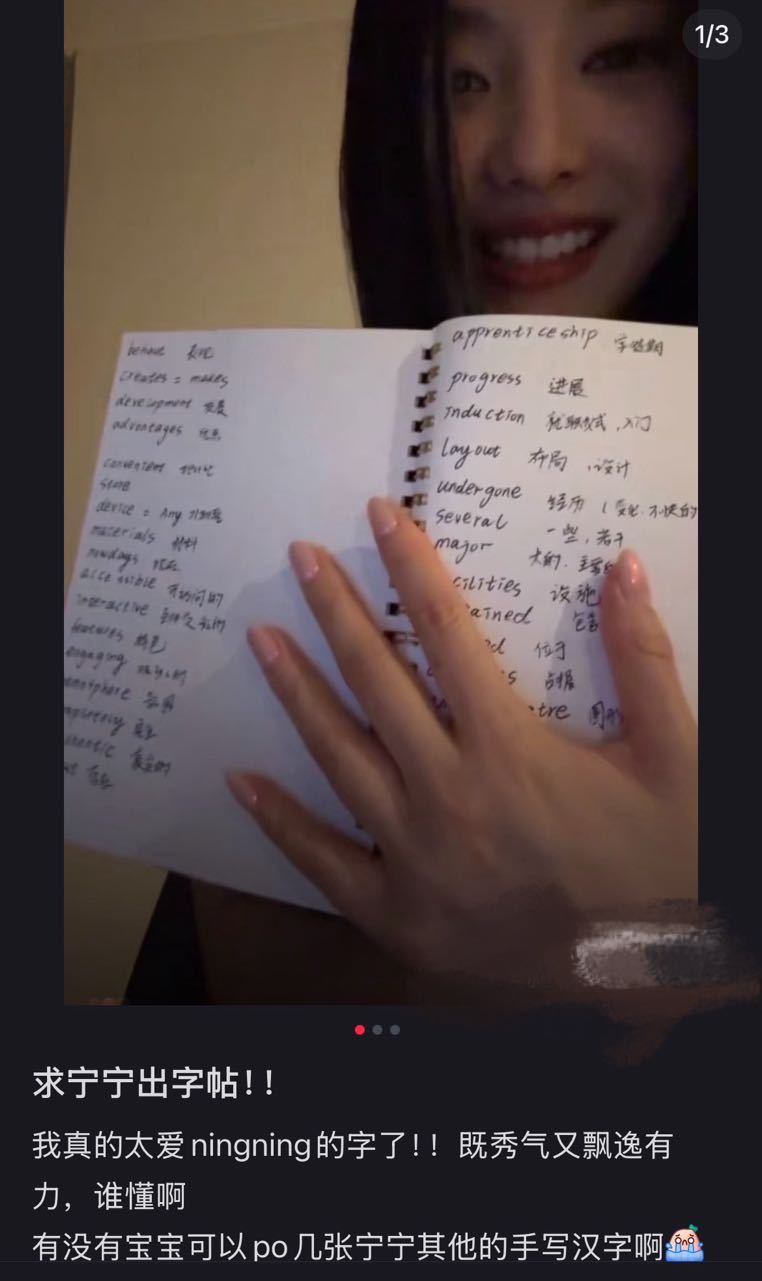 1/3
behave 表现
creates = makes
development 发展
advantages 优点
convenient
store
device = Any
materials 材料
nowdays 现在
accessible 可访问的
interactive
features 特色
engaging
atmosphere
authentic 真实的
apprenticeship 学徒期
progress 进展
induction 就职仪式，入门
layout 布局，设计
undergone 经历（变化.不快的
several 一些，若干
major 大的.主要的
cilities 设施
ained 包含
d 位于
s
tre 圆形
求宁宁出字帖！！
我真的太爱ningning的字了！！既秀气又飘逸有
力，谁懂啊
有没有宝宝可以po几张宁宁其他的手写汉字啊😭